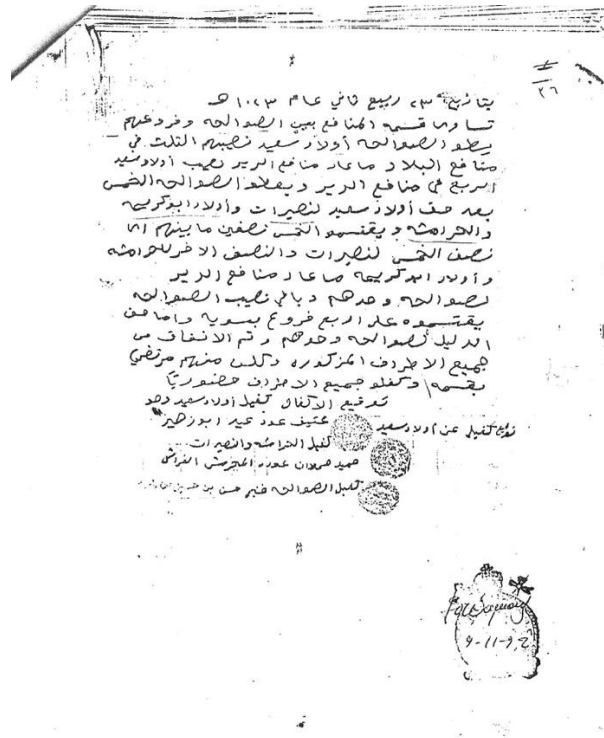 ٣٦
بتاريخ ٢٣ ربيع ثاني عام ١٠٢٣ هـ
تساوما قسمة المنافع بين الصوالحه وفروعهم
يعطو الصوالحه أولاد سعيد نصيبهم الثلث في
منافع البلاد ماعدا منافع الدير نصيب أولاد سعيد
الربع في منافع الدير ويعطو الصوالحه الخمس
بعد حق أولاد سعيد لنصيرات وأولاد ابو كريحه
والحرامشه ويقتسمو الخمس نصفين ما بينهم اما
نصف الخمس لنصيرات والنصف الاخر للحرامشه
وأولاد ابو كريحه ماعدا منافع الدير
لصوالحه وحدهم وباقي نصيب الصوالحه
يقتسموه على اربع فروع بسويه واما حق
الدليل لصوالحه وحدهم وتم الاتفاق من
جميع الاطراف المذكوره وكلن منهم مرتضي
بقسمه وكفلو جميع الاطراف حضوريًا
توقيع الاكفال كفيل أولاد سعيد وهو
توقيع كفيل عن أولاد سعيد عتيف عود عيد ابو زهير
كفيل الحرامشه والنصيرات
حميد عوده الفراش
كفيل الصوالحه حسن بن
9-11-92